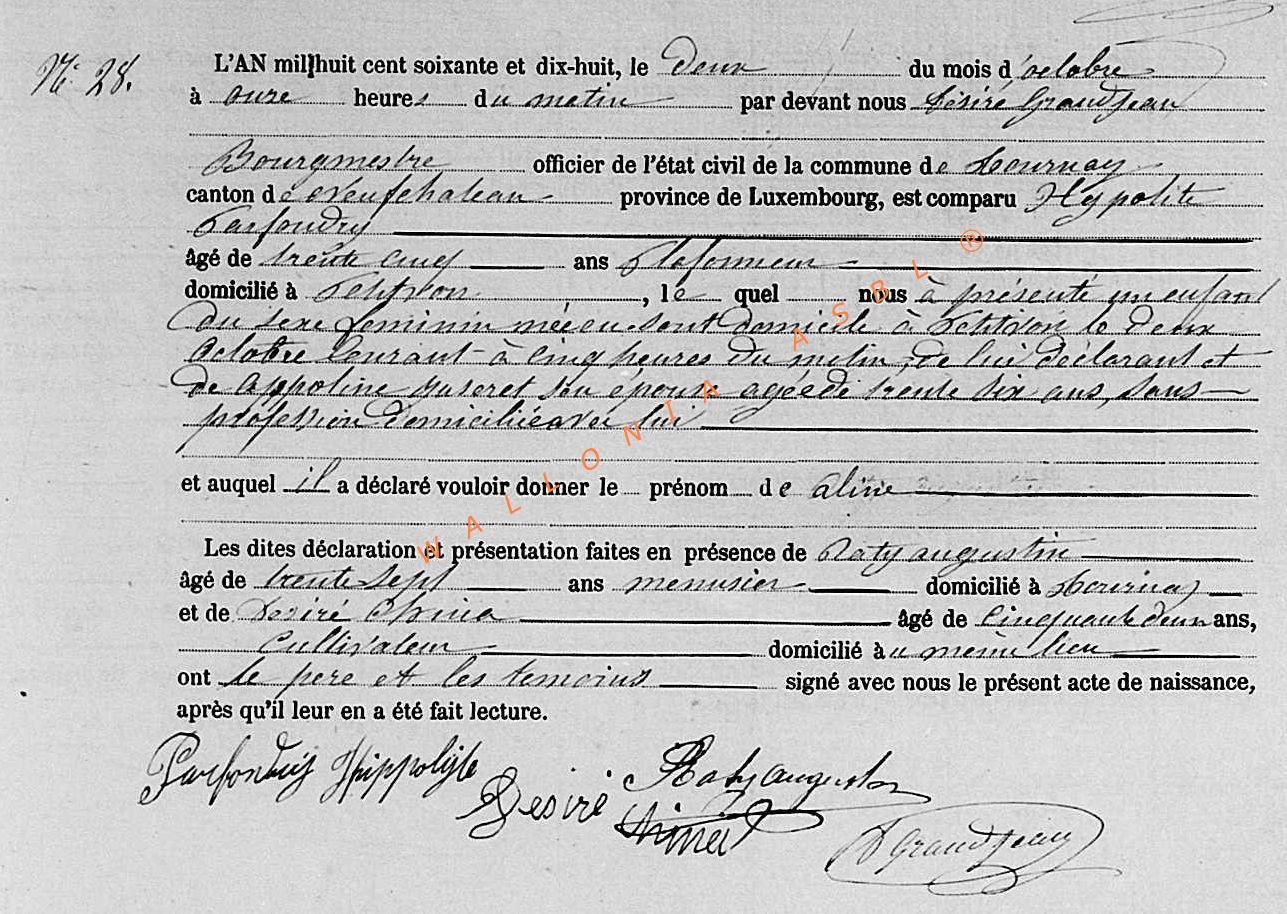 N° 28.
L'AN mil huit cent soixante et dix-huit, le deux du mois d'octobre
à onze heures du matin par devant nous Désiré Grandjean
Bourgmestre officier de l'état civil de la commune de Tournay
canton de Neufchateau province de Luxembourg, est comparu Hypolite
Parfondry
âgé de trente cinq ans Plafonneur
domicilié à Petitvoir, le quel nous à présenté un enfant
du sexe feminin née en son domicile à Petitvoir le deux
Octobre Courant à cinq heures du matin, de lui déclarant et
de Appoline son épouse agée de trente six ans, sans
profession domiciliée avec lui
et auquel il a déclaré vouloir donner le prénom de aline
Les dites déclaration et présentation faites en présence de Raty augustin
âgé de trente sept ans menusier domicilié à Tournay
et de Desiré âgé de Cinquante deux ans,
Cultivateur domicilié à u même lieu
ont le pere et les temoins signé avec nous le présent acte de naissance,
après qu'il leur en a été fait lecture.
Parfondry Hippolyte
Raty augustin
Desiré
D Grandjean
WALLONIA ASBL ®